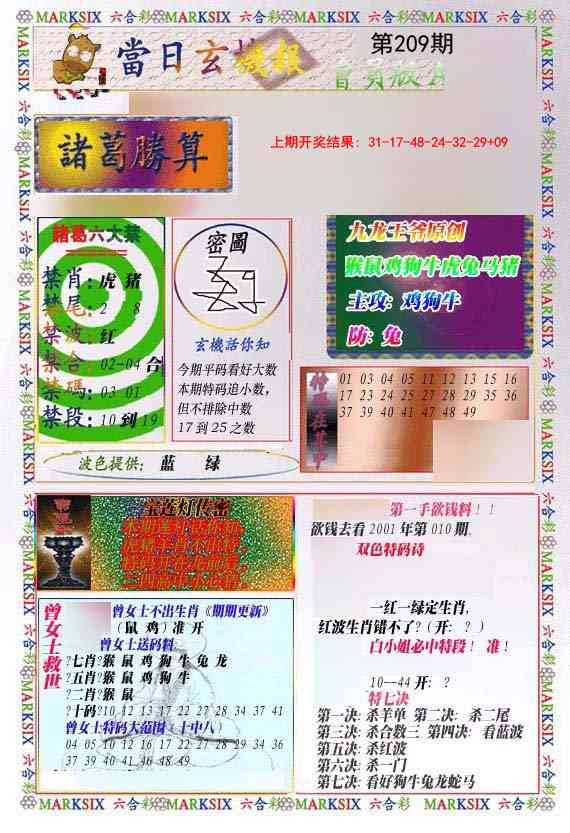 MARKSIX 六合彩 MARKSIX 六合彩 MARKSIX 六合彩 MARKSIX 六合彩
當日玄機報
第209期
諸葛勝算
上期开奖结果: 31-17-48-24-32-29+09
諸葛六大禁
禁肖: 虎 猪
禁尾: 2 8
禁波: 红
禁合: 02-04 合
禁碼: 03 01
禁段: 10 到 19
密圖
玄機話你知
今期平码看好大数
本期特码追小数，
但不排除中数
17 到 25 之数
九龙王爷原创
猴鼠鸡狗牛虎兔马猪
主攻: 鸡狗牛
防: 兔
01 03 04 05 11 12 13 15 16
17 23 24 25 27 28 29 35 36
37 39 40 41 47 48 49
波色提供: 蓝 绿
宝莲灯传密
第一手欲钱料！！
欲钱去看 2001 年第 010 期.
双色特码诗
一红一绿定生肖,
红波生肖错不了? (开: ? )
白小姐必中特段！ 准！
10--44 开: ?
特七决
第一决: 杀羊单 第二决: 杀二尾
第三决: 杀合数三 第四决: 看蓝波
第五决: 杀红波
第六决: 杀一门
第七决: 看好狗牛兔龙蛇马
曾女士救世
曾女士不出生肖《期期更新》
（鼠 鸡）准 开
曾女士送码料
?七肖?猴 鼠 鸡 狗 牛 兔 龙
?五肖?猴 鼠 鸡 狗 牛
?二肖?猴 鼠
?十码?10 12 13 17 22 27 28 34 37 41
曾女士特码大范围（十中八）
04 05 10 12 16 17 22 27 28 29 34 36
37 39 40 41 46 48 49
MARKSIX 六合彩 MARKSIX 六合彩 MARKSIX 六合彩 MARKSIX 六合彩